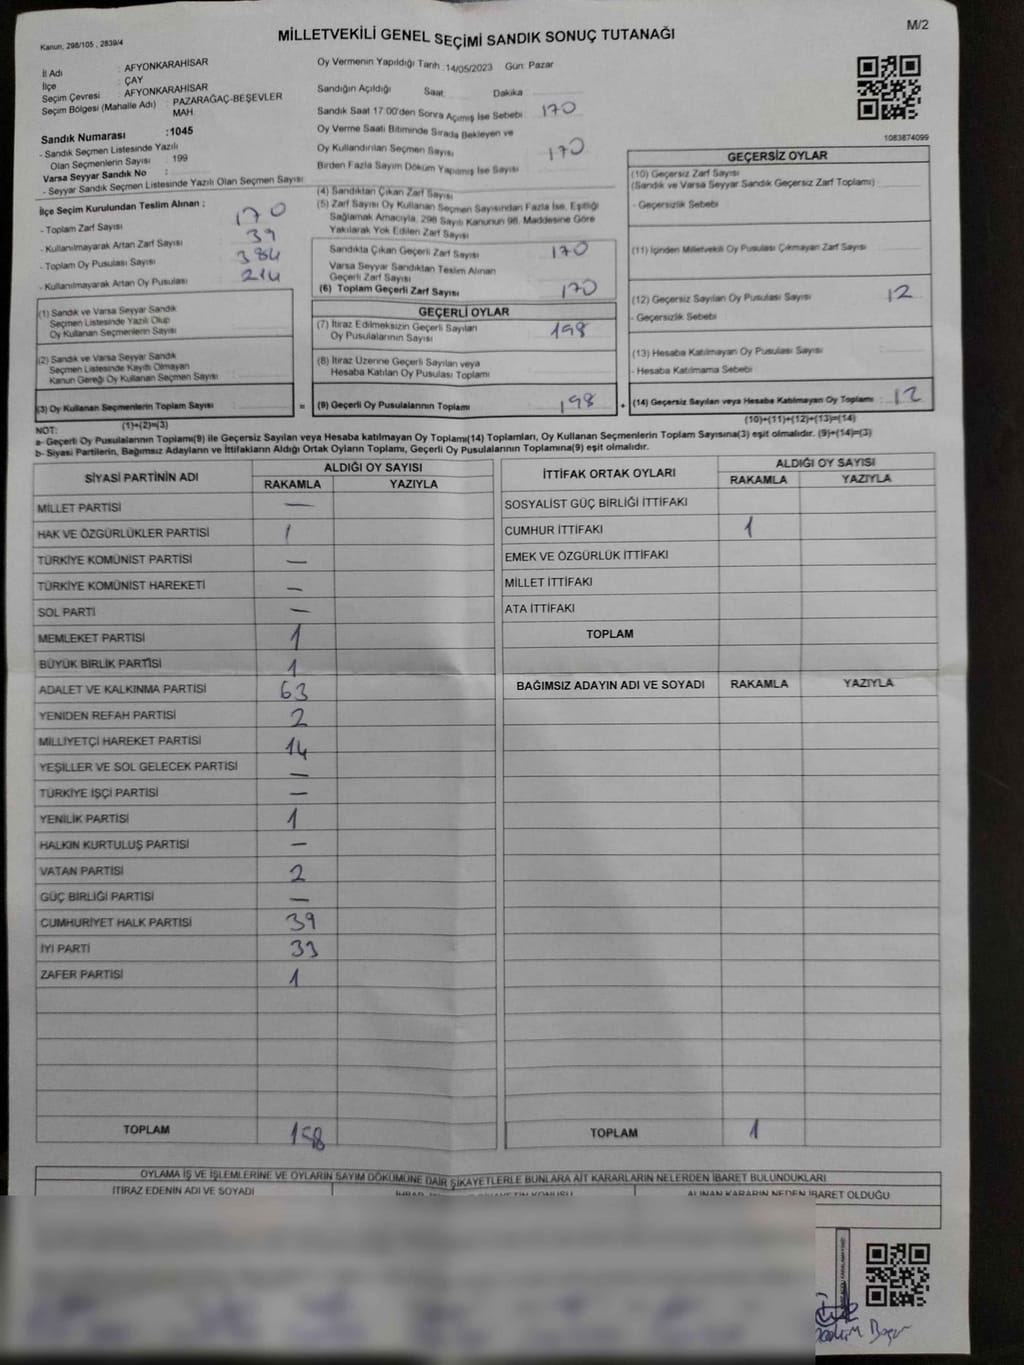 Kanun, 298/105 , 2839/4
MİLLETVEKİLİ GENEL SEÇİMİ SANDIK SONUÇ TUTANAĞI
M/2
İl Adı : AFYONKARAHİSAR
İlçe : ÇAY
Seçim Çevresi : AFYONKARAHİSAR
Seçim Bölgesi (Mahalle Adı) : PAZARAĞAÇ-BEŞEVLER MAH
Sandık Numarası :1045
- Sandık Seçmen Listesinde Yazılı
Olan Seçmenlerin Sayısı : 199
Varsa Seyyar Sandık No :
- Seyyar Sandık Seçmen Listesinde Yazılı Olan Seçmen Sayısı
İlçe Seçim Kurulundan Teslim Alınan ;
- Toplam Zarf Sayısı 170
- Kullanılmayarak Artan Zarf Sayısı 39
- Toplam Oy Pusulası Sayısı 384
- Kullanılmayarak Artan Oy Pusulası 214
(1) Sandık ve Varsa Seyyar Sandık
Seçmen Listesinde Yazılı Olup
Oy Kullanan Seçmenlerin Sayısı
(2) Sandık ve Varsa Seyyar Sandık
Seçmen Listesinde Kayıtlı Olmayan
Kanun Gereği Oy Kullanan Seçmen Sayısı
(3) Oy Kullanan Seçmenlerin Toplam Sayısı
(1)+(2)=(3)
Oy Vermenin Yapıldığı Tarih :14/05/2023 Gün: Pazar
Sandığın Açıldığı Saat Dakika
Sandık Saat 17:00'den Sonra Açımış İse Sebebi 170
Oy Verme Saati Bitiminde Sırada Bekleyen ve
Oy Kullandırılan Seçmen Sayısı 170
Birden Fazla Sayım Döküm Yapılmış İse Sayısı
(4) Sandıktan Çıkan Zarf Sayısı
(5) Zarf Sayısı Oy Kullanan Seçmen Sayısından Fazla İse, Eşitliği
Sağlamak Amacıyla, 298 Sayılı Kanunun 98. Maddesine Göre
Yakılarak Yok Edilen Zarf Sayısı
Sandıkta Çıkan Geçerli Zarf Sayısı 170
Varsa Seyyar Sandıktan Teslim Alınan
Geçerli Zarf Sayısı
(6) Toplam Geçerli Zarf Sayısı 170
GEÇERLİ OYLAR
(7) İtiraz Edilmeksizin Geçerli Sayılan
Oy Pusulalarının Sayısı 198
(8) İtiraz Üzerine Geçerli Sayılan veya
Hesaba Katılan Oy Pusulası Toplamı
= (9) Geçerli Oy Pusulalarının Toplamı 198 +
1083874099
GEÇERSİZ OYLAR
(10) Geçersiz Zarf Sayısı
(Sandık ve Varsa Seyyar Sandık Geçersiz Zarf Toplamı)
- Geçersizlik Sebebi
(11) İçinden Milletvekili Oy Pusulası Çıkmayan Zarf Sayısı
(12) Geçersiz Sayılan Oy Pusulası Sayısı 12
- Geçersizlik Sebebi
(13) Hesaba Katılmayan Oy Pusulası Sayısı
- Hesaba Katılmama Sebebi
(14) Geçersiz Sayılan veya Hesaba Katılmayan Oy Toplamı : 12
(10)+(11)+(12)+(13)=(14)
NOT:
a- Geçerli Oy Pusulalarının Toplamı(9) ile Geçersiz Sayılan veya Hesaba katılmayan Oy Toplamı(14) Toplamları, Oy Kullanan Seçmenlerin Toplam Sayısına(3) eşit olmalıdır. (9)+(14)=(3)
b- Siyasi Partilerin, Bağımsız Adayların ve İttifakların Aldığı Ortak Oyların Toplamı, Geçerli Oy Pusulalarının Toplamına(9) eşit olmalıdır.
SİYASİ PARTİNİN ADI ALDIĞI OY SAYISI
RAKAMLA YAZIYLA
MİLLET PARTİSİ —
HAK VE ÖZGÜRLÜKLER PARTİSİ 1
TÜRKİYE KOMÜNİST PARTİSİ —
TÜRKİYE KOMÜNİST HAREKETİ —
SOL PARTİ —
MEMLEKET PARTİSİ 1
BÜYÜK BİRLİK PARTİSİ 1
ADALET VE KALKINMA PARTİSİ 63
YENİDEN REFAH PARTİSİ 2
MİLLİYETÇİ HAREKET PARTİSİ 14
YEŞİLLER VE SOL GELECEK PARTİSİ —
TÜRKİYE İŞÇİ PARTİSİ —
YENİLİK PARTİSİ 1
HALKIN KURTULUŞ PARTİSİ —
VATAN PARTİSİ 2
GÜÇ BİRLİĞİ PARTİSİ —
CUMHURİYET HALK PARTİSİ 39
İYİ PARTİ 33
ZAFER PARTİSİ 1
TOPLAM 158
İTTİFAK ORTAK OYLARI ALDIĞI OY SAYISI
RAKAMLA YAZIYLA
SOSYALİST GÜÇ BİRLİĞİ İTTİFAKI
CUMHUR İTTİFAKI 1
EMEK VE ÖZGÜRLÜK İTTİFAKI
MİLLET İTTİFAKI
ATA İTTİFAKI
TOPLAM
BAĞIMSIZ ADAYIN ADI VE SOYADI RAKAMLA YAZIYLA
TOPLAM 1
OYLAMA İŞ VE İŞLEMLERİNE VE OYLARIN SAYIM DÖKÜMÜNE DAİR ŞİKAYETLERLE BUNLARA AİT KARARLARIN NELERDEN İBARET BULUNDUKLARI
İTİRAZ EDENİN ADI VE SOYADI
ALINAN KARARIN NEDEN İBARET OLDUĞU